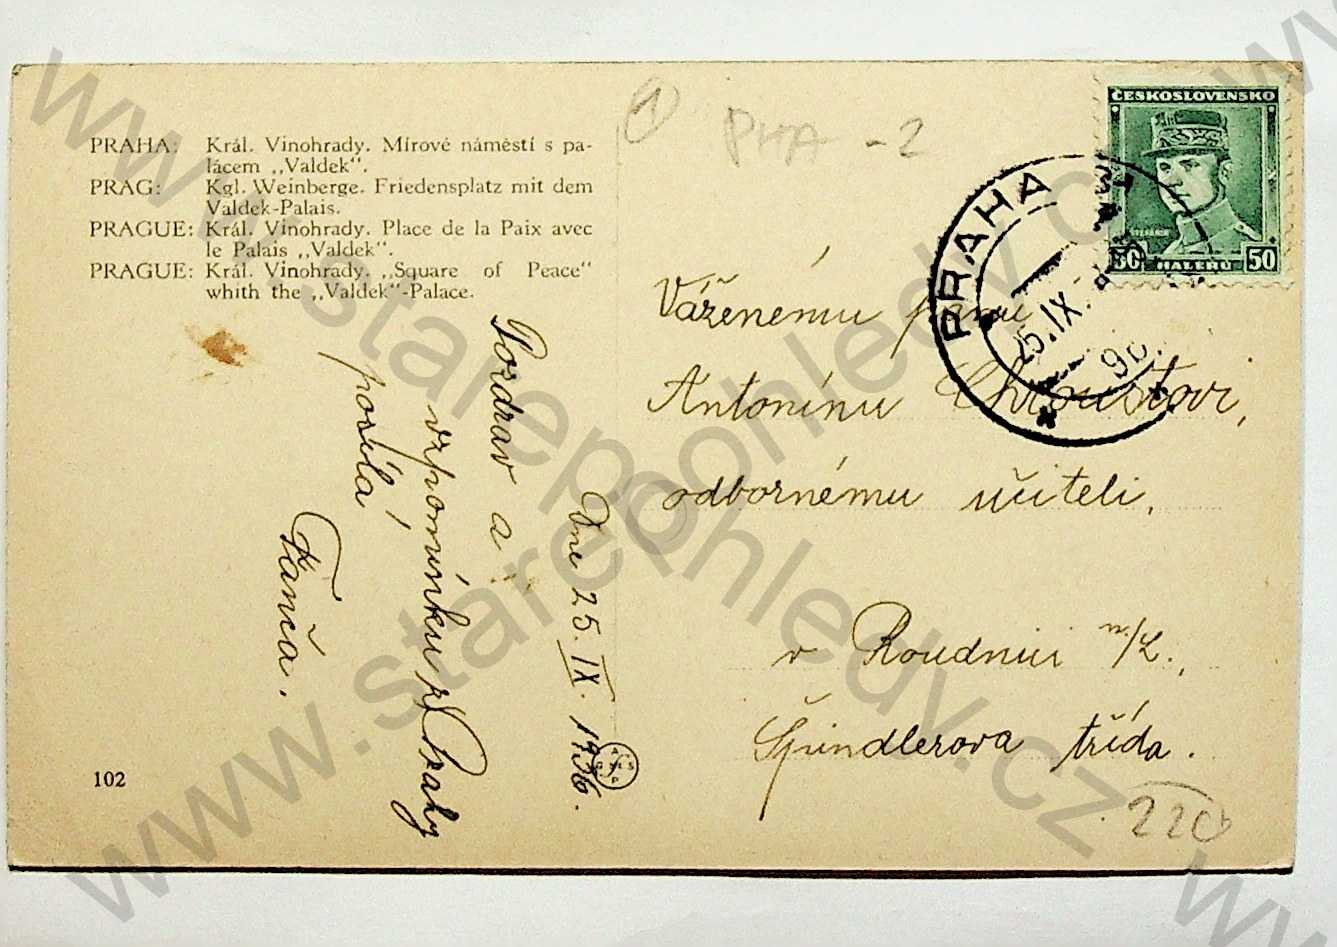 PRAHA: Král. Vinohrady. Mírové náměstí s pa-
lácem „Valdek".
PRAG: Kgl. Weinberge. Friedensplatz mit dem
Valdek-Palais.
PRAGUE: Král. Vinohrady. Place de la Paix avec
le Palais „Valdek".
PRAGUE: Král. Vinohrady. „Square of Peace"
whith the „Valdek"-Palace.
1
PHA - 2
ČESKOSLOVENSKO
ŠTEFÁNIK
50 HALÉŘŮ 50
PRAHA
25.IX.
Váženému panu
Antonínu Chloustovi,
odbornému učiteli,
v Roudnici n/L.,
Špindlerova třída.
220
Dne 25. IX. 1936.
Pozdrav a
vzpomínku z Prahy
posílá
Fanča.
102
www.starepohledy.cz
www.starepohledy.cz